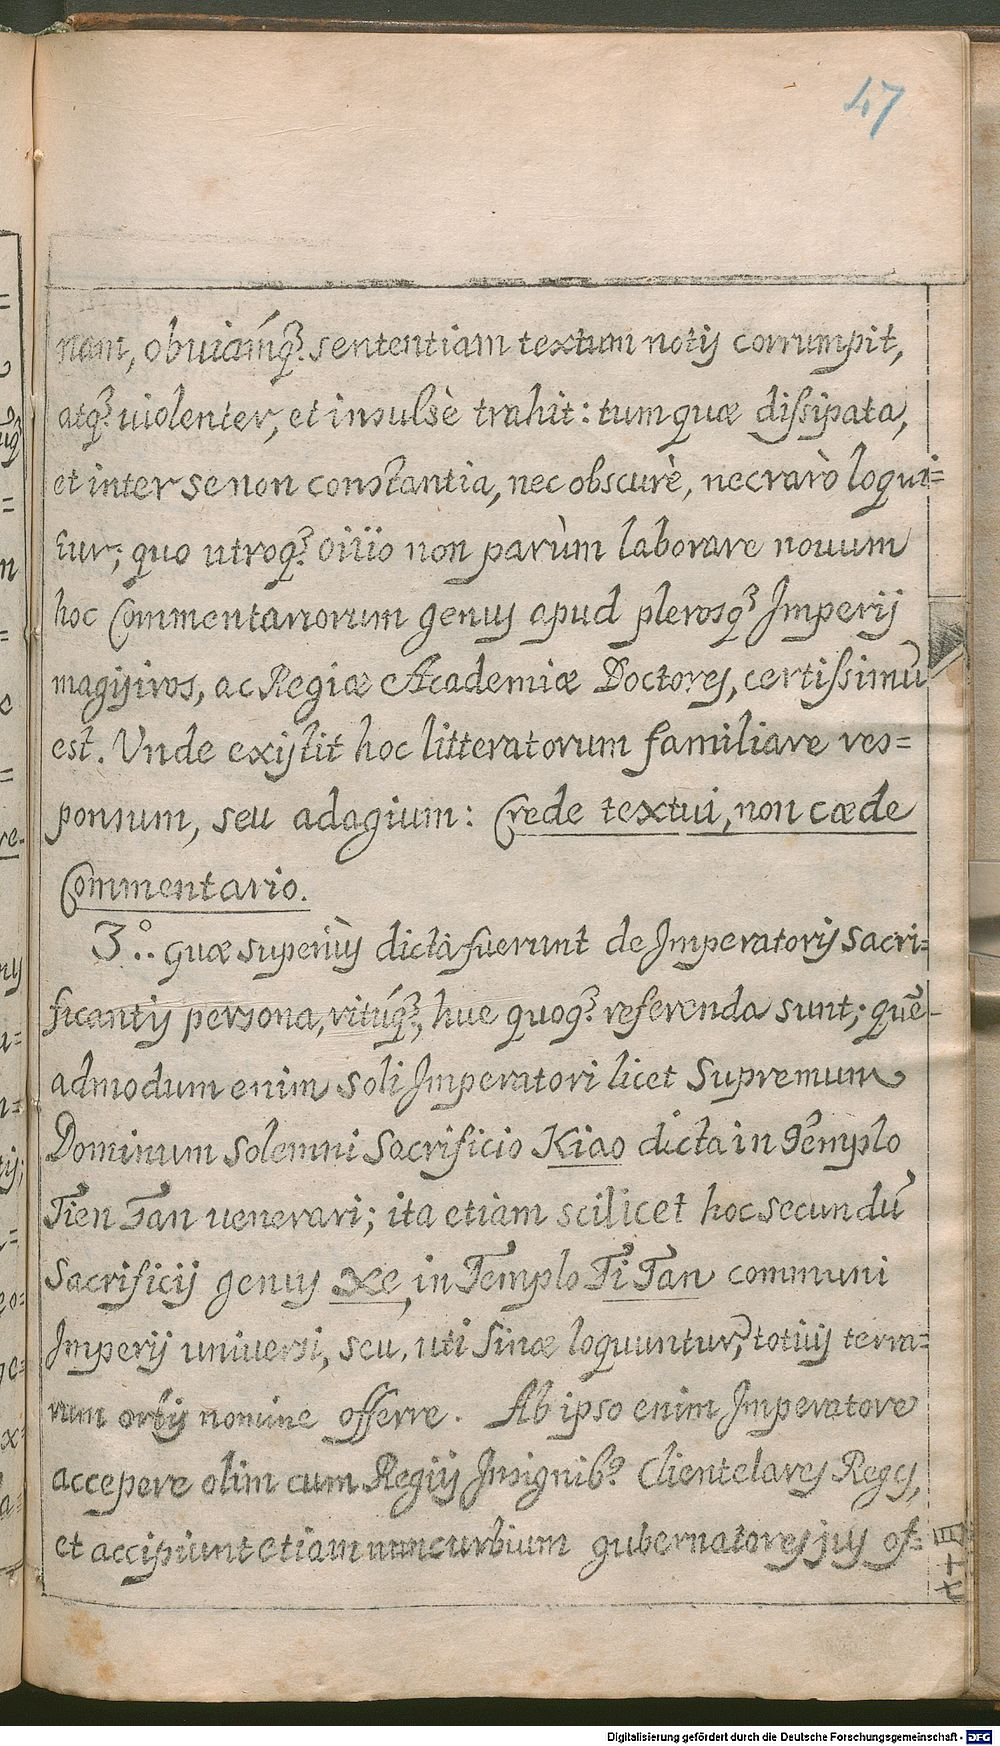 47
nam, obuiámq́ꝫ sententiam textum notis corrumpit,
atqꝫ uiolenter, et insulsè trahit: tum quæ dissipata,
et inter se non constantia, nec obscurè, nec raro loqui=
tur; quo utroqꝫ oiiio non parùm laborare nouum
hoc Commentariorum genus apud plerosqꝫ Imperij
magistros, ac Regiæ Academiæ Doctores, certissimū
est. Vnde existit hoc litteratorum familiare res=
ponsum, seu adagium: Crede textui, non cæde
Commentario.
3º.. Quæ superiùs dicta fuerunt de Imperatoris sacri=
ficantis persona, ritúqꝫ, huc quoqꝫ referenda sunt; quē-
admodum enim soli Imperatori licet Supremum
Dominum solemni Sacrificio Kiao dicta in Tēmplo
Tien Tan uenerari; ita etiam scilicet hoc secundū
Sacrificij genus Xe, in Templo Ti Tan communi
Imperij universi, seu, uti Sinæ loquuntur, totius terra=
rum orbis nomine offerre. Ab ipso enim Imperatore
accepere olim cum Regiis Insignibꝰ Clientelares Reges,
et accipiunt etiam nunc urbium gubernatores jus of=
Digitalisierung gefördert durch die Deutsche Forschungsgemeinschaft - DFG